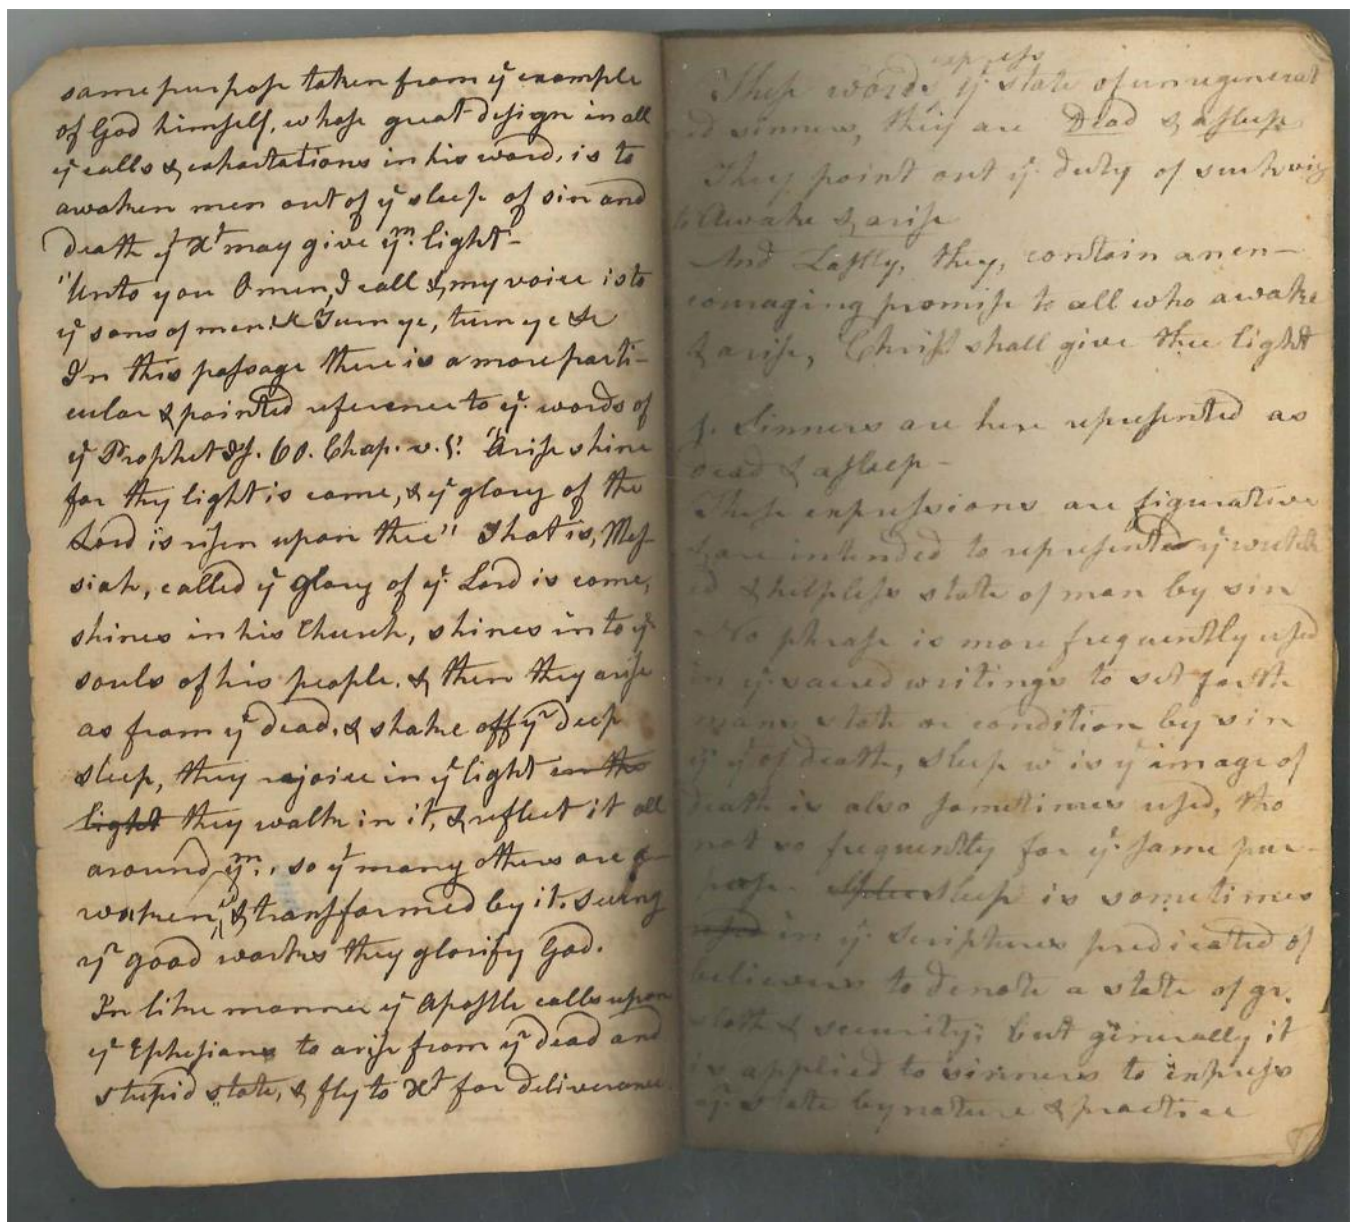 same purpose taken from yͤ example
of God himself, whose great design in all
yͤ calls & exhortations in his word, is to
awaken men out of yͤ sleep of sin and
death yͭ Xͭ may give yͫ. light-
"Unto you O men, I call & my voice is to
yͤ sons of men. Turn ye, turn ye &c
In this passage there is a more parti-
cular & pointed reference to yͤ. words of
yͤ Prophet Is. 60. Chap. v. 1. "Arise shine
for thy light is come, & yͤ glory of the
Lord is risen upon thee" That is, Mes-
siah, called yͤ glory of yͤ. Lord is come,
shines in his Church, shines into yͤ
souls of his people, & then they arise
as from yͤ dead, & shake off yͬ deep
sleep, they rejoice in yͤ light in the
light they walk in it, & reflect it all
around yͫ., so yͭ many others are a-
waken'd & transformed by it, seeing
yͬ good works they glorify God.
In like manner yͤ Apostle calls upon
yͤ Ephesians to arise from yͬ dead and
stupid state, & fly to Xͭ for deliverance.
express
These words yͤ state of unregenerat
ed sinners, they are Dead & asleep
They point out yͤ. duty of such viz
to Awake & arise
And Lastly, they, contain an en-
couraging promise to all who awake
& arise, Christ shall give thee light
1. Sinners are here represented as
dead & asleep-
These expressions are figurative
& are intended to represented yͤ wretch
ed & helpless state of man by sin
No phrase is more frequently used
in yͤ. sacred writings to set forth
mans state or condition by sin
yͭ of death, sleep wͨ is yͤ image of
death is also sometimes used, tho
not so frequently for yͤ. same pur-
pose. sleep is sometimes
used in yͤ. scriptures predicated of
believers to denote a state of gr.
sloth & security; but generally it
is applied to sinners to express
yͬ state by nature & practice